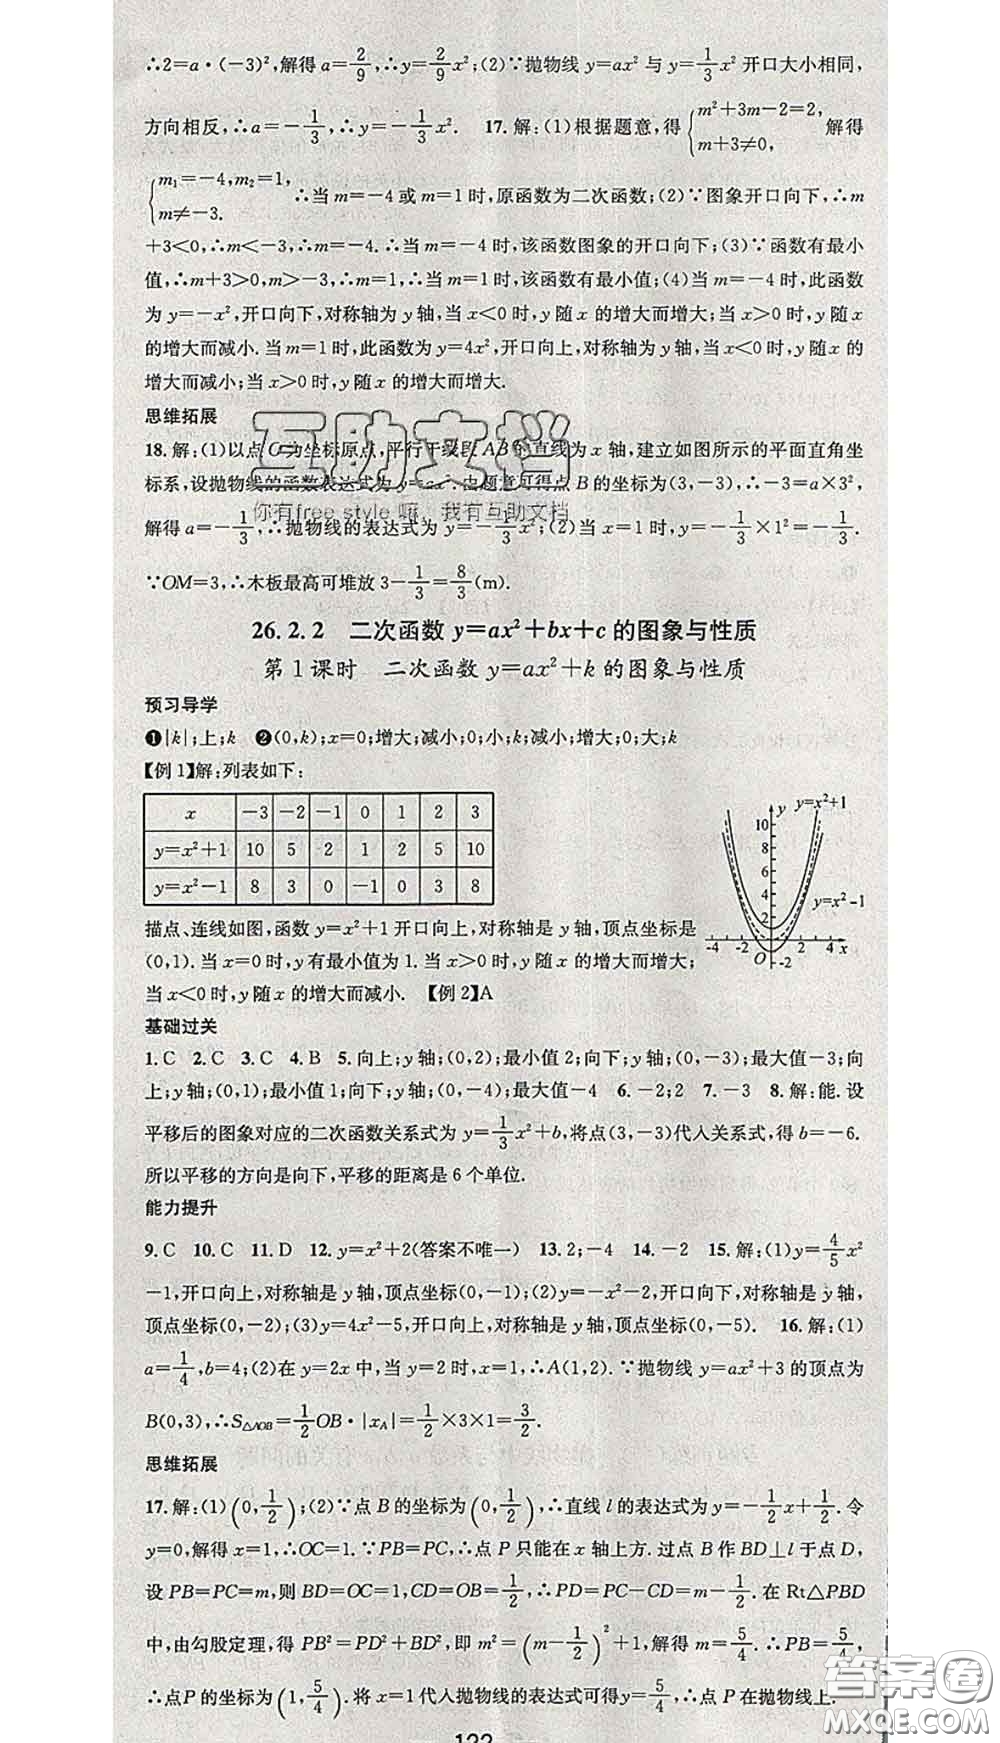 ∴2=a·(-3)²,解得a=2/9,∴y=2/9x²;(2)∵抛物线y=ax²与y=1/3x²开口大小相同,
方向相反,∴a=-1/3,∴y=-1/3x². 17.解:(1)根据题意,得{m²+3m-2=2, m+3≠0, 解得
{m₁=-4,m₂=1, m≠-3. ∴当m=-4或m=1时,原函数为二次函数;(2)∵图象开口向下,∴m
+3<0,∴m<-3,∴m=-4.∴当m=-4时,该函数图象的开口向下;(3)∵函数有最小
值,∴m+3>0,m>-3,∴m=1,∴当m=1时,该函数有最小值;(4)当m=-4时,此函数
为y=-x²,开口向下,对称轴为y轴,当x<0时,y随x的增大而增大;当x>0时,y随x
的增大而减小.当m=1时,此函数为y=4x²,开口向上,对称轴为y轴,当x<0时,y随x的
增大而减小;当x>0时,y随x的增大而增大.
思维拓展
18.解:(1)以点O为坐标原点,平行于线段AB的直线为x轴,建立如图所示的平面直角坐
标系,设抛物线的函数表达式为y=ax².由题意可得点B的坐标为(3,-3),∴-3=a×3²,
解得a=-1/3,∴抛物线的表达式为y=-1/3x²;(2)当x=1时,y=-1/3×1²=-1/3.
∵OM=3,∴木板最高可堆放3-1/3=8/3(m).
互助文档
你有free style嘛,我有互助文档
26.2.2 二次函数y=ax²+bx+c的图象与性质
第1课时 二次函数y=ax²+k的图象与性质
预习导学
❶|k|;上;k ❷(0,k);x=0;增大;减小;0;小;k;减小;增大;0;大;k
【例1】解:列表如下:
x -3 -2 -1 0 1 2 3
y=x²+1 10 5 2 1 2 5 10
y=x²-1 8 3 0 -1 0 3 8
y y=x²+1
10
8
6
4
2
y=x²-1
-4 -2 O 2 4 x
-2
描点、连线如图,函数y=x²+1开口向上,对称轴是y轴,顶点坐标是
(0,1).当x=0时,y有最小值为1.当x>0时,y随x的增大而增大;
当x<0时,y随x的增大而减小. 【例2】A
基础过关
1.C 2.C 3.C 4.B 5.向上;y轴;(0,2);最小值2;向下;y轴;(0,-3);最大值-3;向
上;y轴;(0,1);最小值1;向下;y轴;(0,-4);最大值-4 6.-2;2 7.-3 8.解:能.设
平移后的图象对应的二次函数关系式为y=1/3x²+b,将点(3,-3)代入关系式,得b=-6.
所以平移的方向是向下,平移的距离是6个单位.
能力提升
9.C 10.C 11.D 12.y=x²+2(答案不唯一) 13.2;-4 14.-2 15.解:(1)y=4/5x²
-1,开口向上,对称轴是y轴,顶点坐标(0,-1);(2)y=-x²-2,开口向下,对称轴是y轴,
顶点坐标(0,-2);(3)y=4x²-5,开口向上,对称轴是y轴,顶点坐标(0,-5). 16.解:(1)
a=1/4,b=4;(2)在y=2x中,当y=2时,x=1,∴A(1,2).∵抛物线y=ax²+3的顶点为
B(0,3),∴S△AOB=1/2OB·|xA|=1/2×3×1=3/2.
思维拓展
17.解:(1)(0,1/2);(2)∵点B的坐标为(0,1/2),∴直线l的表达式为y=-1/2x+1/2.令
y=0,解得x=1,∴OC=1.∵PB=PC,∴点P只能在x轴上方.过点B作BD⊥l于点D,
设PB=PC=m,则BD=OC=1,CD=OB=1/2,∴PD=PC-CD=m-1/2.在Rt△PBD
中,由勾股定理,得PB²=PD²+BD²,即m²=(m-1/2)²+1,解得m=5/4.∴PB=5/4,
∴点P的坐标为(1,5/4).将x=1代入抛物线的表达式可得y=5/4,∴点P在抛物线上.
答案圈
MXQE.COM
122